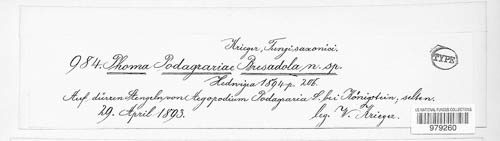 Krieger, Fungi saxonici.
984. Phoma Podagrariae Bresadola n. sp.
TYPE
Hedwigia 1894 p. 206.
Auf dürren Stengeln von Aegopodium Podagraria L. bei Königstein, selten.
29. April 1893.
leg. W. Krieger.
US NATIONAL FUNGUS COLLECTIONS
979260